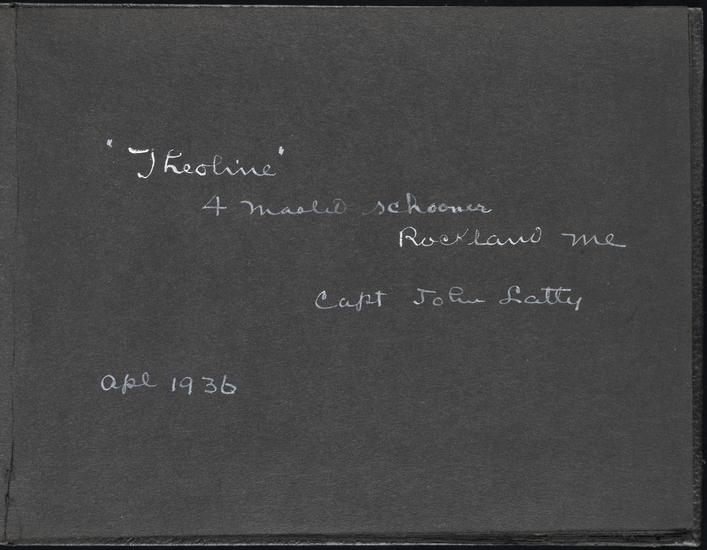 "Theoline"
4 Masted schooner
Rockland Me
Capt John Latty
Apl 1936